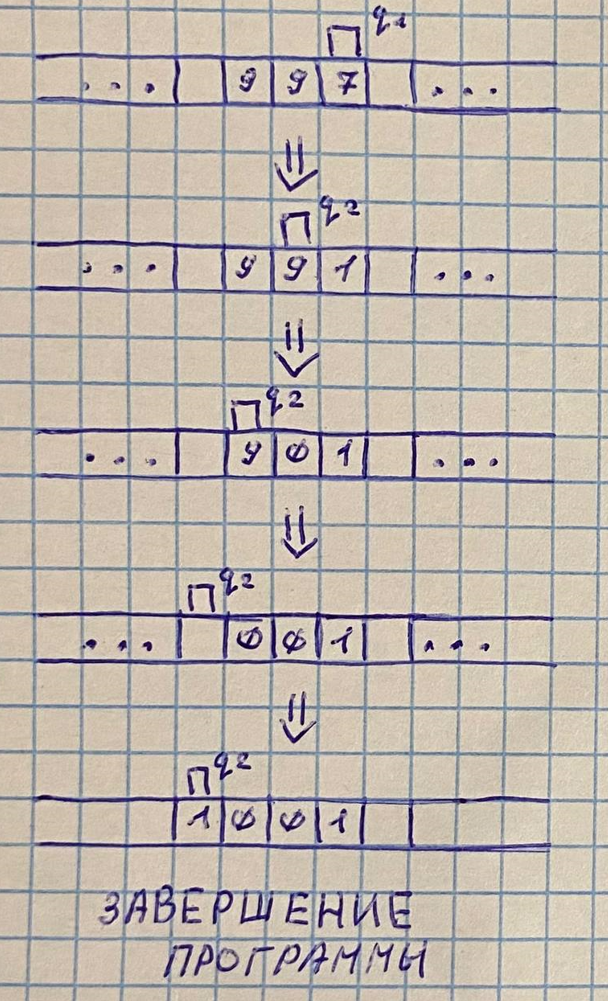 q1
... 9 9 7 ...
⇓
q2
... 9 9 1 ...
⇓
q2
... 9 0 1 ...
⇓
q2
... 0 0 1 ...
⇓
q2
1 0 0 1
ЗАВЕРШЕНИЕ
ПРОГРАММЫ